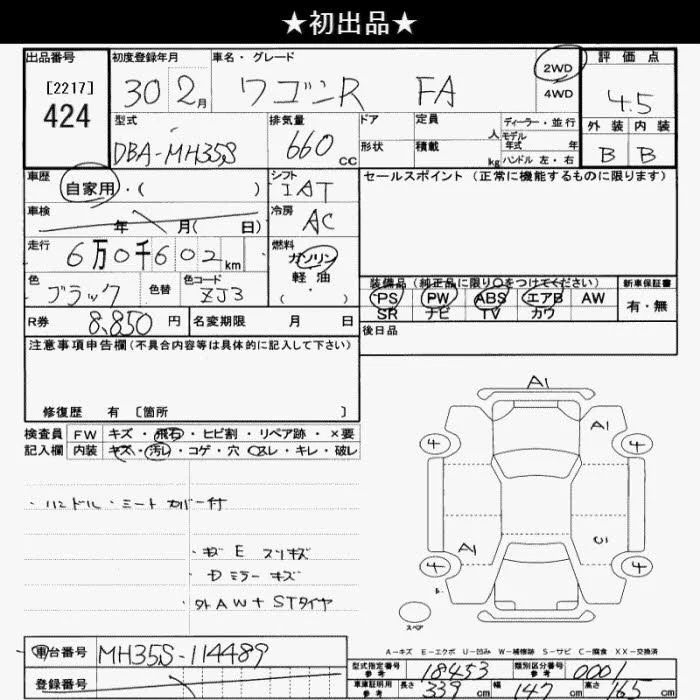 ★初出品★
出品番号 初度登録年月 車名・グレード 評価点
[2217] 30 2月 ワゴンR FA 2WD 4WD 4.5
424
型式 排気量 ドア 定員 人 ディーラー・並行 外装 内装
モデル年式 年
DBA-MH35S 660cc 形状 積載 kg ハンドル 左・右 B B
車歴 自家用・( ) シフト IAT セールスポイント (正常に機能するものに限ります)
車検 年 月( 日) 冷房 AC
走行 6万0千602km 燃料 ガソリン 軽油 ( ・ )
色 ブラック 色替 色コード ZJ3
装備品 (純正品に限り○をつけてください) 新車保証書
PS PW ABS エアB AW 有・無
SR ナビ TV カワ
R券 8,850円 名変期限 月 日 後日品
注意事項申告欄(不具合内容等は具体的に記入して下さい)
修復歴 有 [箇所 ]
検査員 FW キズ・飛石・ヒビ割・リペア跡・×要
記入欄 内装 キズ・汚レ・コゲ・穴・スレ・キレ・破レ
A1
A1
4 4
・ハンドル・シートカバー付
・キズ E スリキズ
A1 C1
・Dミラーキズ
4 4
・外AW+STタイヤ
スペア
A-キズ E-エクボ U-凹み W-補修跡 S-サビ C-腐食 XX-交換済
車台番号 MH35S-114489
登録番号
型式指定番号 参考 18453 類別区分番号 参考 0001
車庫証明用 参考 長さ 339cm 幅 147cm 高さ 165cm